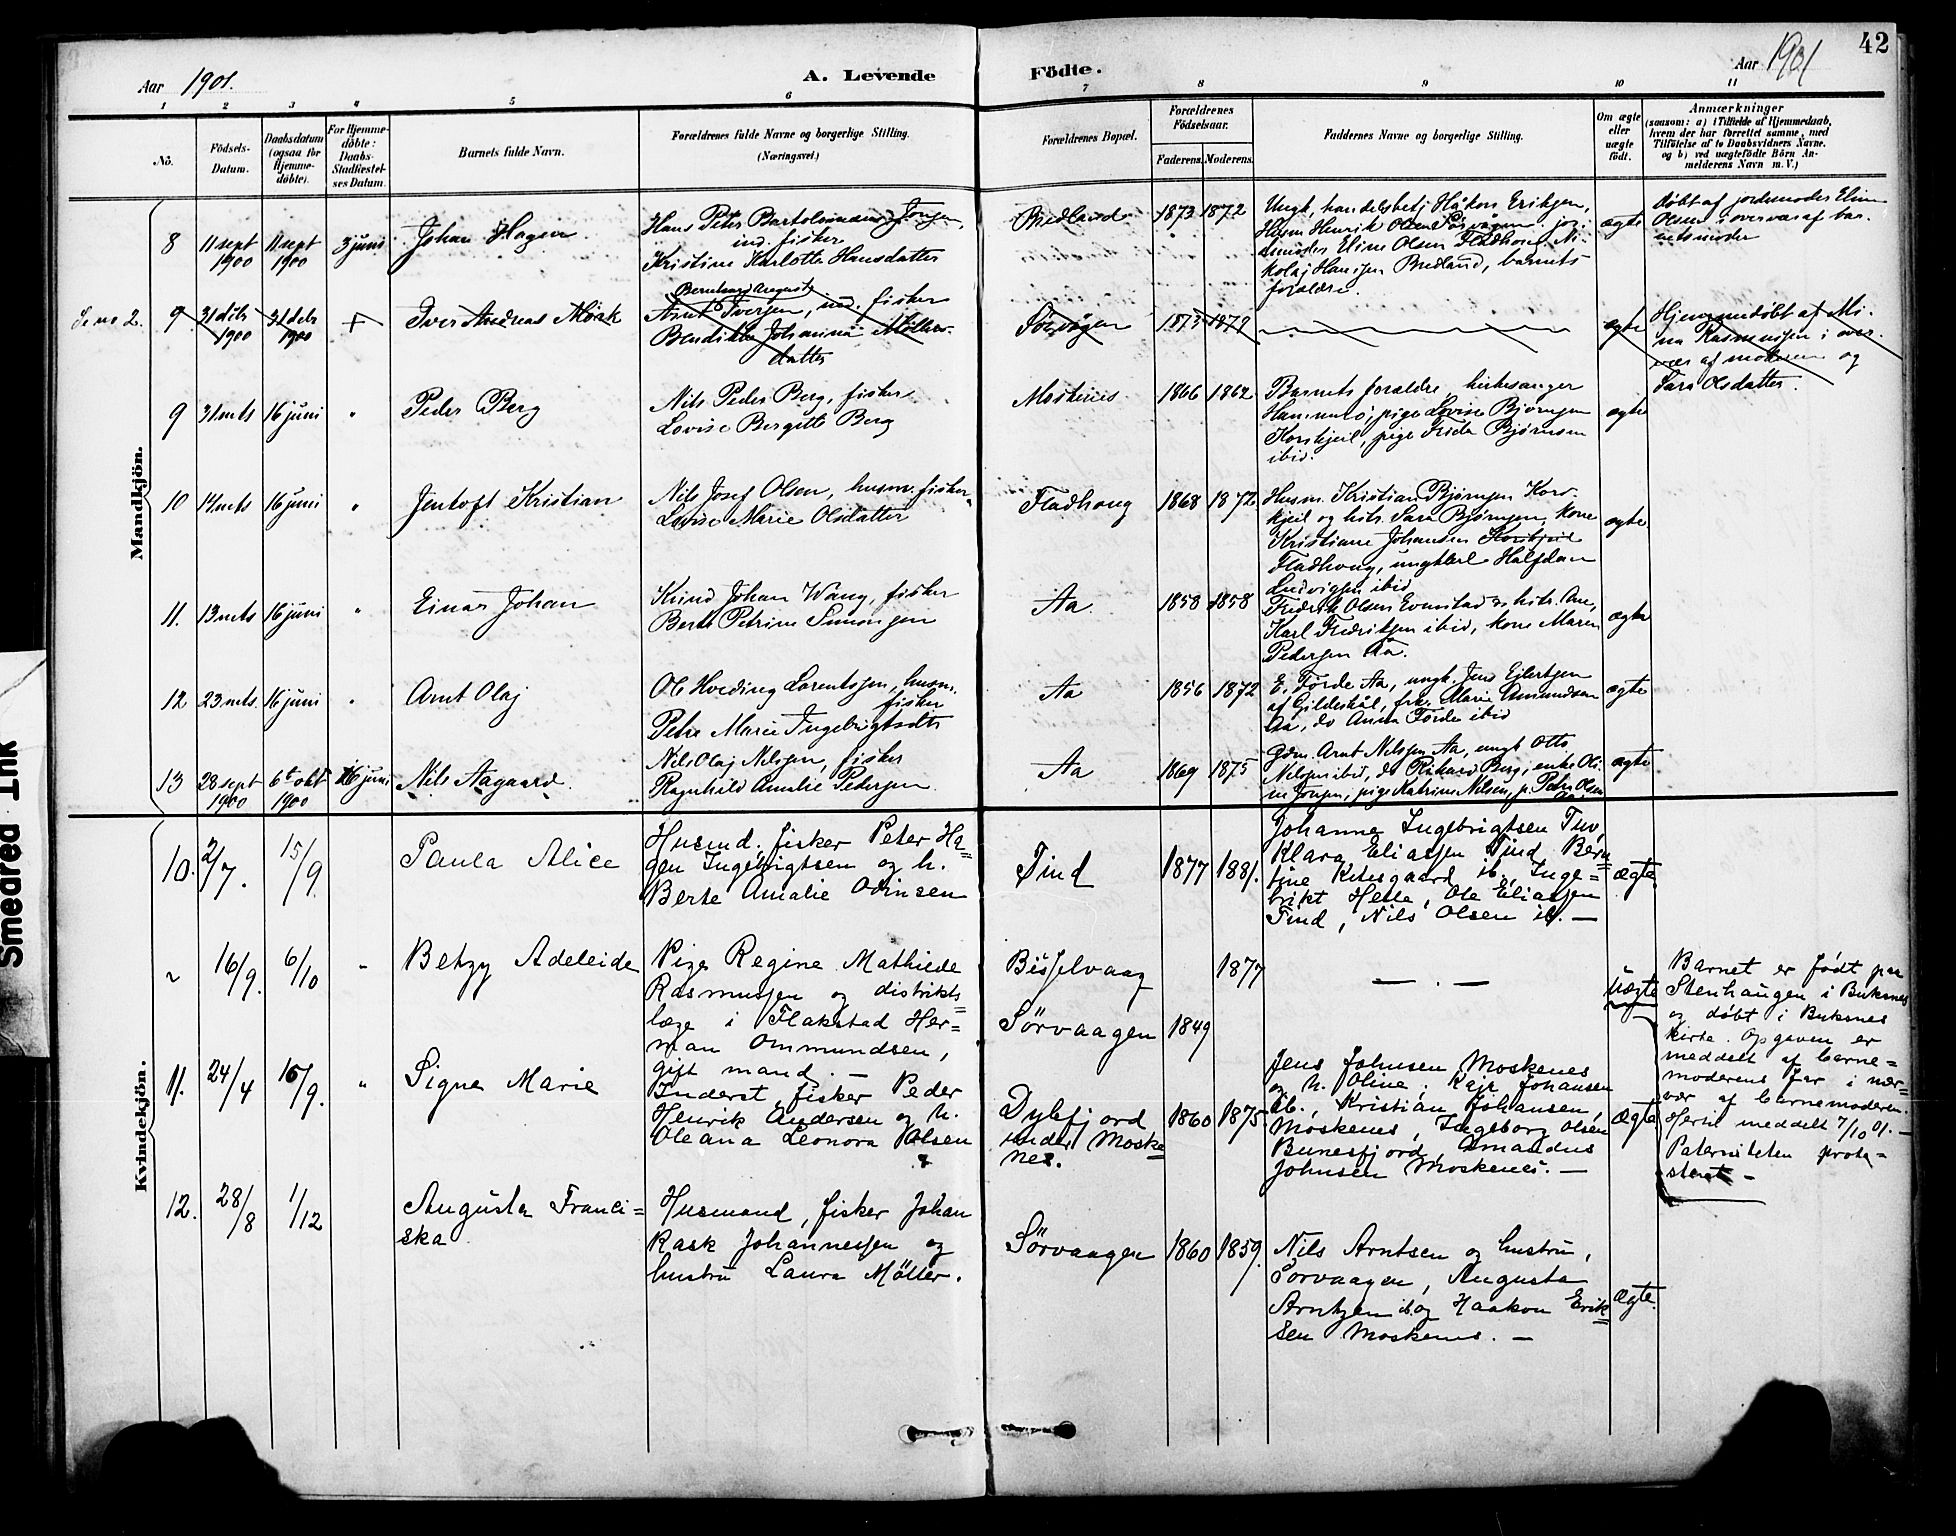 42
Aar 1901. A. Levende Födte. Aar 1901
1 2 3 4 5 6 7 8 9 10 11
No.
Födsels-
Datum.
Daabsdatum
(ogsaa for
Hjemme-
døbte).
For Hjemme-
døbte:
Daabs-
Stadfæstel-
ses Datum.
Barnets fulde Navn.
Forældrenes fulde Navne og borgerlige Stilling.
(Næringsvei.)
Forældrenes Bopæl.
Forældrenes
Fødselsaar.
Faderens. Moderens.
Faddernes Navne og borgerlige Stilling.
Om ægte
eller
uægte
født.
Anmærkninger
(saasom: a) i Tilfælde af Hjemmedaab,
hvem der har forrettet samme, med
Tilföielse af to Daabsvidners Navne.
og b) ved uægtefödte Börn An-
melderens Navn m. V.)
Mandkjön.
8
11 sept
1900
11 sept
1900
3 juni
Johan Hagen
Hans Peter Bartolomæus Jensen,
ind. fisker
Kristine Karlotte Hansdatter
Bredland
1873 1872
Ungk. handelsbetj. Håkon Eriksen,
Husm. Henrik Olsen Sörvågen, jor-
demoder Eline Olsen Fladhoug, Ni-
kolaj Hansen Bredland, barnets
forældre.
ægte
døbt af jordemoder Eline
Olsen i overvær af bar-
nets moder
Se no 2.
9
31 dcbr
1900
31 dcbr
1900
Iver Andreas Mörk
Bernhard August
Arnt Iversen, ind. fisker
Bendikte Johanna
datter
Sörvågen
1873 1879
ægte
Hjemmedøbt af Mi-
na Rasmussen i over-
vær af moderen og
Sara Olsdatter.
9
31 mts
16 juni
"
Peder Berg
Nils Peder Berg, fisker
Lovise Bergitte Berg
Moskenes
1866 1862
Barnets forældre, kirkesanger
Hammerö, pige Lovise Björnsen
Korshjeil, pige Frida Björnsen
ibid.
ægte
10
14 mts
16 juni
"
Jentoft Kristian
Nils Josef Olsen, husm. fisker
Lovise Marie Olsdatter
Fladhoug
1868 1872
Husm. Kristian Björnsen Kors-
hjeil og hstr. Sara Björnsen, kone
Kristiane Johansen Korshjeil
Fladhoug, ungkarl Halfdan
Ludvigsen ibid
ægte
11.
13 mts
16 juni
"
Einar Johan
Knud Johan Wang, fisker
Berte Petrine Simonsen
Aa
1858 1858
Fredrik Olsen Evenstad og hstr. Ane,
Karl Fredriksen ibid, kone Maren
Pedersen Aa.
ægte
12
23 mts.
16 juni
"
Arnt Olaj
Ole Hveding Lorentssen, husm.
fisker
Petra Marie Ingebrigtsdtr
Aa
1856 1872
E. Förde Aa, ungk. Jens Eilertsen
af Gildeskål, frk. Marie Amundsen
Aa, do Anna Förde ibid
ægte
13
28 sept
1900
6t okt
1900
16 juni
Nils Aagaard.
Nils Olaj Nilsen, fisker
Ragnhild Amalie Pedersen
Aa
1869 1875
Gdm. Arnt Nilsen Aa, ungk. Otto
Nilsen ibid, do Rikard Berg, enke Oli-
ne Jensen, pige Katrine Nilsen, p. Petra Olsen
Aa
ægte
Kvindekjön.
10.
2/7.
15/9.
Paula Alice
Husmd, fisker Peter Ha-
gen Ingebrigtsen og h.
Berte Amalie Odinsen
Tind
1877 1881.
Johanna Ingebrigtsen Tuv,
Klara Eliassen Tind, Bern-
tine Kildegaard ib., Inge-
brikt Helle, Ole Eliassen
Tind, Nils Olsen ib. —
ægte
"
16/9.
6/10
"
Betzy Adeleide
Pige Regine Mathilde
Rasmussen og distrikts
læge i Flakstad Her-
man Ommundsen,
gift mand. —
Bisselvaag
Sörvaagen
1849 1877
— . —
Uægte
Barnet er født paa
Stenhaugen i Buksnes
og døbt i Buksnes
kirke. Opgaven er
meddelt af barne-
moderens far i nær-
vær af barnemoderen.
Hertil meddelt 7/10 01. —
Paterniteten prote-
steret —
11.
24/4
15/9.
"
Signe Marie
Inderst, fisker Peder
Henrik Andersen og h.
Oleana Leonora Olsen
Dybfjord
under Moske-
nes.
1860 1875
Jens Johnsen Moskenes
og h. Oline. Kaja Johansen
ib., Kristian Johansen,
Moskenes, Ingeborg Olsen
Bunesfjord, Amandus
Johnsen Moskenes. —
ægte
12.
28/8
1/12
Augusta Franci-
ska
Husmand, fisker Johan
Rask Johannessen og
hustru Laura Möller.
Sörvaagen
1860 1859.
Nils Arntsen og hustru,
Sorvaagen, Augusta
Arntzen ib. og Haakon Erik-
sen Moskenes. —
ægte.
Smeared Ink